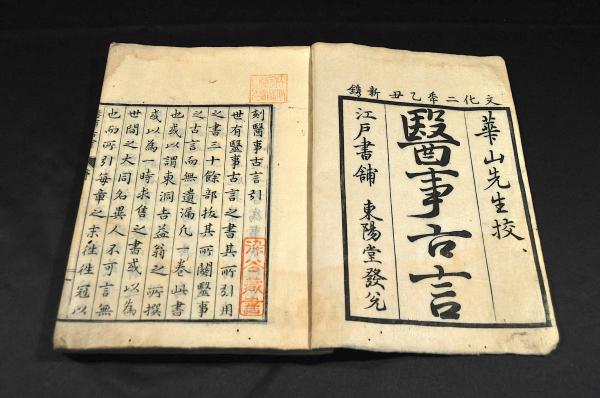 文化二年乙丑新鐫
華山先生校
醫事古言
江戸書舗 東陽堂發兌
刻醫事古言引
世有醫事古言之書其所引用
之書三十餘部抜其所關醫事
之古言而無遺漏凡一卷此書
也或以謂東洞古益翁之所撰
或以為一時求售之書或以為
世間之大同名異人不可言無
也而所引每章之末往往冠以